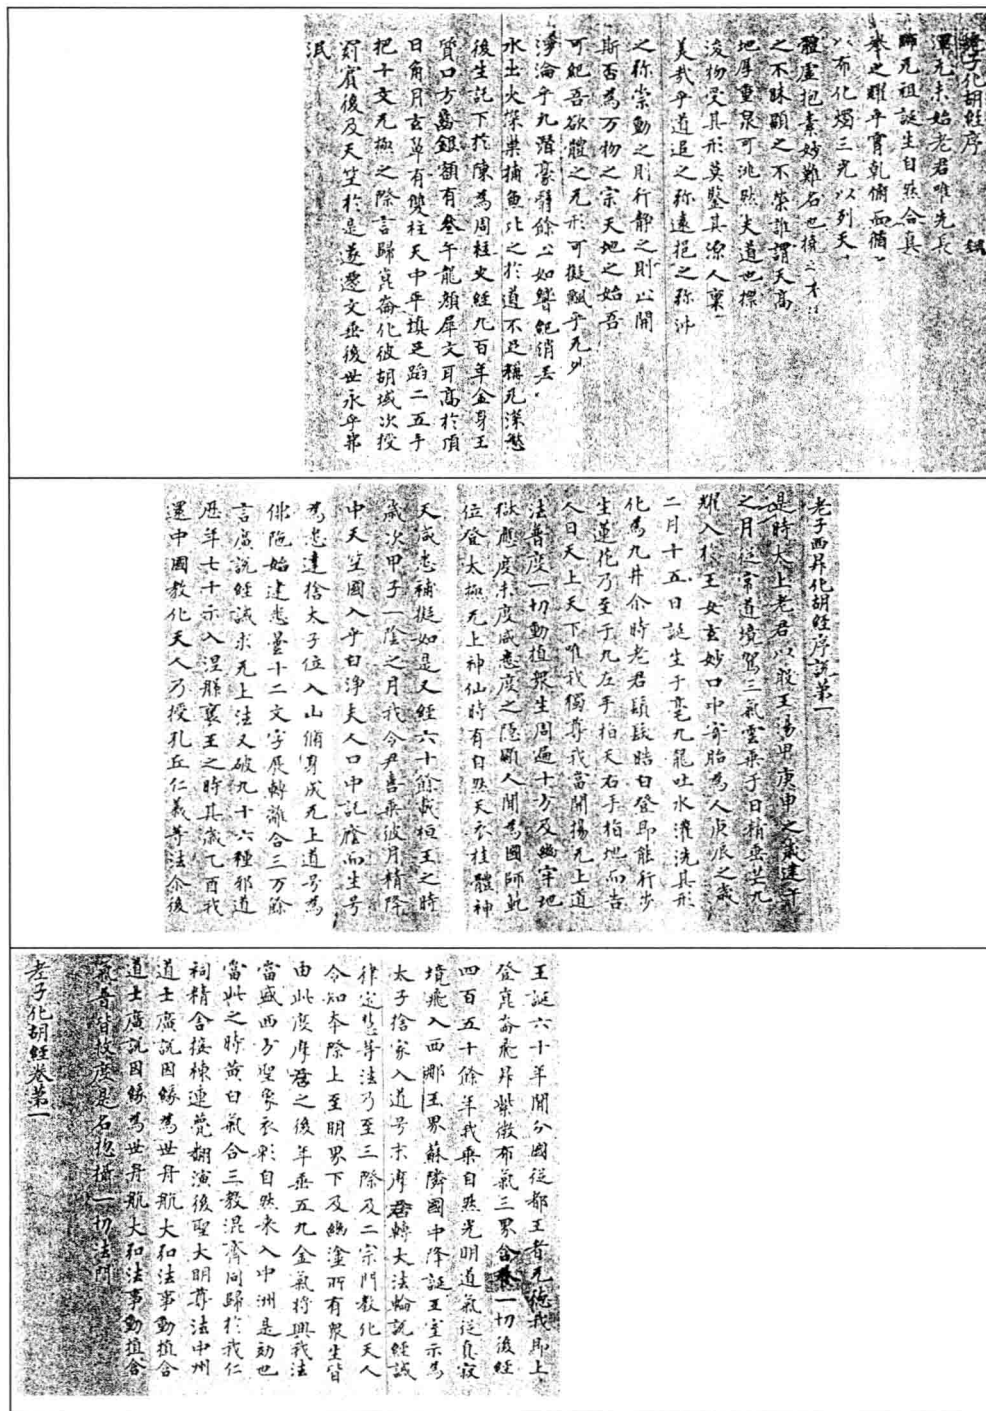 老子化胡經序
渾元未始老君唯先長
師元祖誕生自然合真
奉之耀乎霄乾備而循
以布化燭三光以列天
體虛抱素妙難名也
之不昧顯之不榮誰謂天高
地厚重泉可洮然夫道也標
浚物受其形莫鑒其深人稟
美哉乎道追之弥遠挹之弥沖
之称崇動之則行靜之則止開
斯否為万物之宗天地之始吾
可紀吾欲體之无形可擬飄乎无外
淨淪乎九潛豪釐餘
水出火巢巢捕魚比之於道不足稱元深愁
後生託下於陳為周柱史經九百年金身玉
質口方齒銀額有叄午龍顏犀文耳高於頂
日角月玄鼻有雙柱天中平填足蹈二五手
把十文无極之際言歸崑崙化彼胡域次授
罽賓後及天竺於是遂遷文垂後世永乎弗
泯
老子西昇化胡經序說第一
是時太上老君以殷王湯甲庚申之歲建午
之月從常道境駕三氣雲乘于日精垂芒九
耀入於王女玄妙口中寄胎為人庚辰之歲
二月十五日誕生于亳九龍吐水灌洗其形
化為九井尒時老君鬚髮晧白登即能行步
生蓮花乃至于九左手指天右手指地而告
人曰天上天下唯我獨尊我當開揚无上道
法普度一切動植衆生周遍十方及幽牢地
獄應度未度咸悉度之隱顯人間為國師軌
位登太極无上神仙時有自然天衣挂體神
天歲悉補擬如是又經六十餘載桓王之時
歲次甲子一陰之月我令尹喜乘彼月精降
中天竺國入乎白淨夫人口中託廕而生号
為悉達捨太子位入山脩身成无上道号為
佛陁始建悉曇十二文字展轉離合三万餘
言廣說經誡求无上法又破九十六種邪道
歷年七十示入涅槃襄王之時其歲乙酉我
還中國教化天人乃授孔丘仁義等法尒後
王誕六十年間分國從都王者无德我即上
登崑崙飛昇紫微布氣三界含養一切後經
四百五十餘年我乘自然光明道氣從真寂
境飛入西那王界蘇隣國中降誕王室示為
太子捨家入道号末摩君轉大法輪說經誡
律定慧等法乃至三際及二宗門教化天人
令知本際上至明界下及幽塗所有衆生皆
由此度摩君之後年垂五九金氣將興我法
當盛西方聖象衣彩自然來入中洲是効也
當此之時黃白氣合三教混齊同歸於我仁
祠精舍接棟連甍翻演後聖大明尊法中州
道士廣說因緣為世舟航大和法事動植含
道士廣說因緣為世舟航大和法事動植含
氣普皆救度是名惣攝一切法門
老子化胡經卷第一